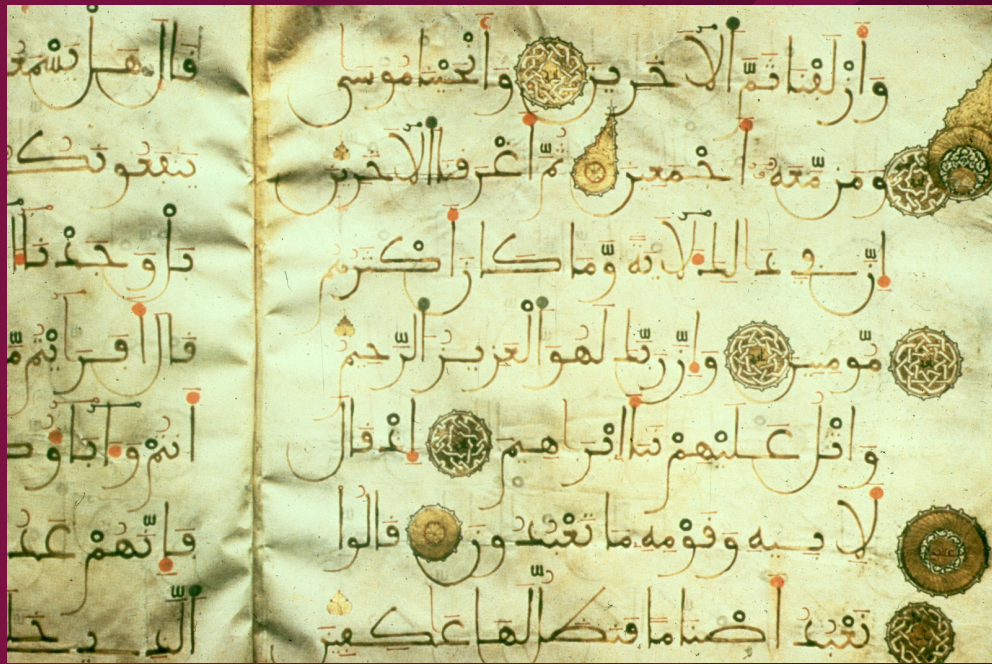 وأزلفنا ثم الآخرين وأنجينا موسى
ومن معه أجمعين ثم أغرقنا الآخرين
إن في ذلك لآية وما كان أكثرهم
مومنين وإن ربك لهو العزيز الرحيم
واتل عليهم نبأ إبراهيم إذ قال
لأبيه وقومه ما تعبدون قالوا
نعبد أصناما فنظل لها عكفين
قال هل
ينفعونك
نا وجدنا
قال أفرأيتم
أنتم وآباؤ
فإنهم عد
الذي خلـ